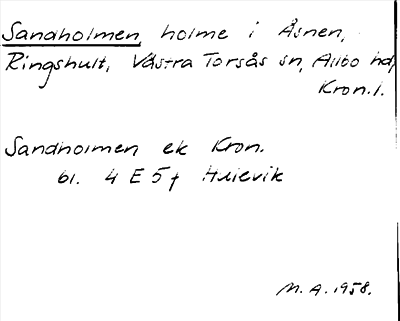 Sandholmen, holme i Åsnen,
Ringshult, Västra Torsås sn, Allbo hd,
Kron.l.
Sandholmen ek Kron.
bl. 4 E 5 f Hulevik
M.A. 1958.